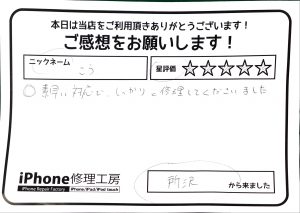 本日は当店をご利用頂きありがとうございます!
ご感想をお願いします!
ニックネーム
こう
星評価 ☆☆☆☆☆
対応で、しっかりと修理してくださいました
iPhone修理工房
iPhone Repair Factory iPhone/iPad/iPod touch
所沢 から来ました